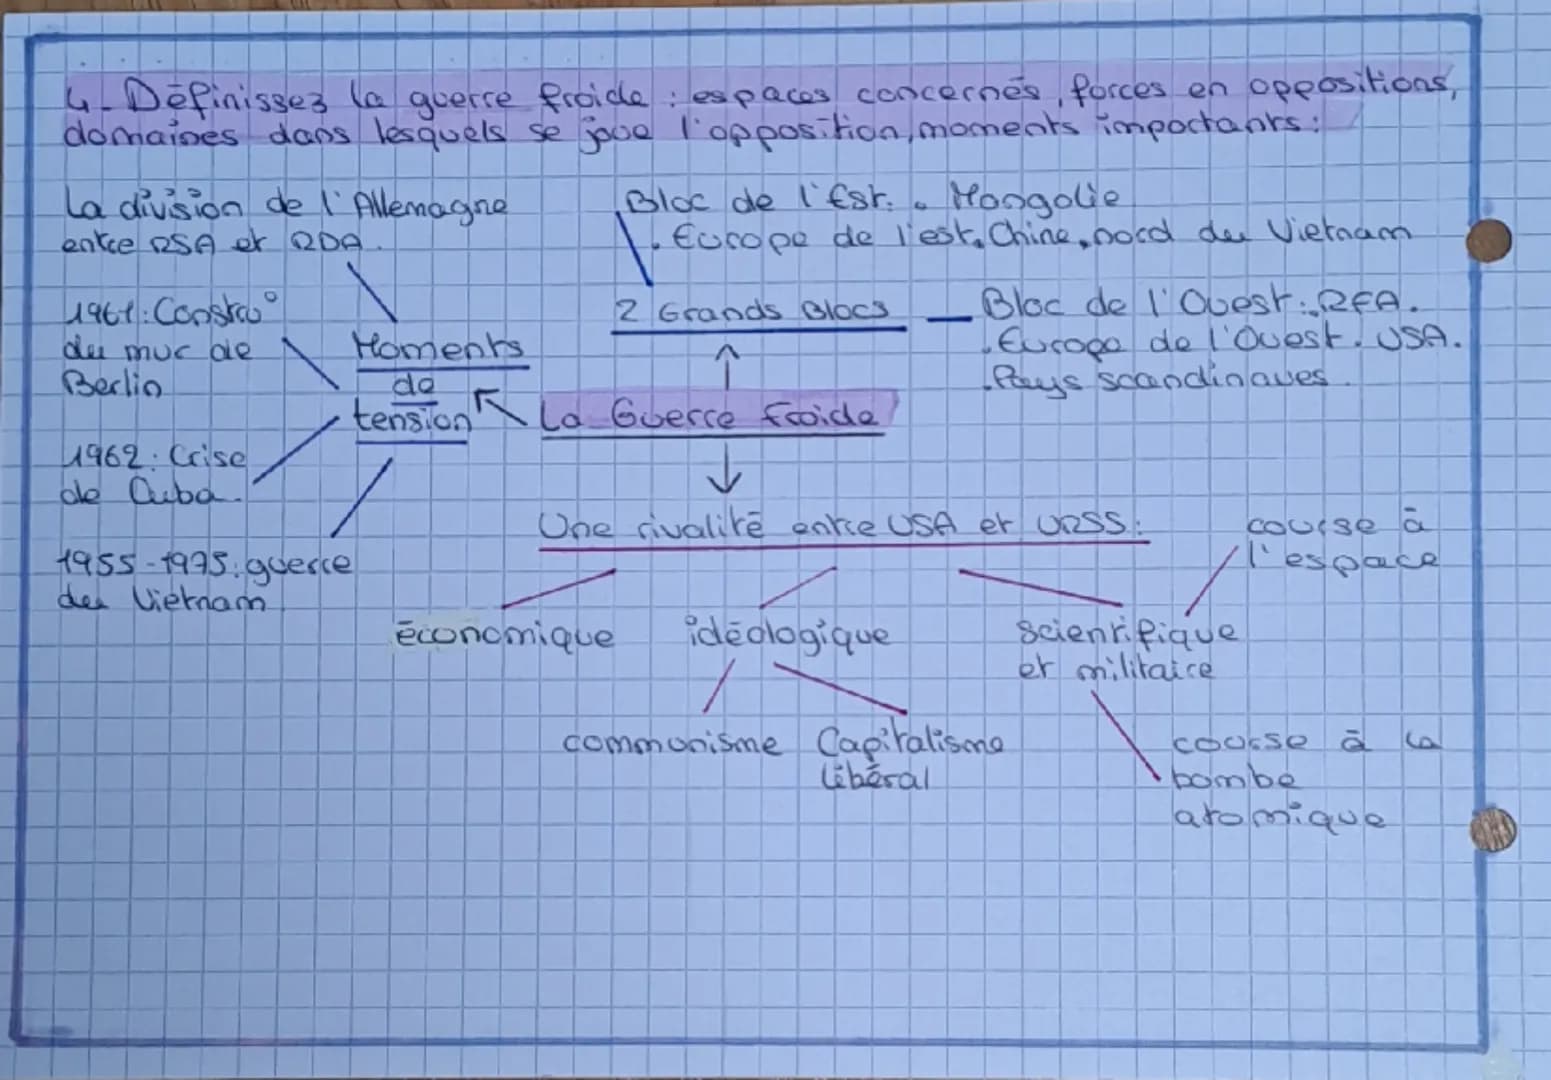 4_ Définissez la guerre froide : espaces concernés, forces en oppositions,
domaines dans lesquels se joue l'opposition, moments importants :
La division de l'Allemagne
entre RSA et RDA.
Bloc de l'Est: . Mongolie
. Europe de l'est. Chine. nord du Vietnam
2 Grands Blocs
Bloc de l'Ouest: . RFA.
. Europe de l'Ouest. USA.
. Pays scandinaves.
1961: Constru°
du mur de
Berlin
Moments
de
tension
La Guerre froide
1962: Crise
de Cuba.
1955-1975: guerre
du Vietnam
Une rivalité entre USA et URSS:
économique
idéologique
scientifique
et militaire
course à
l'espace
communisme
Capitalisme
libéral
course à la
bombe
atomique